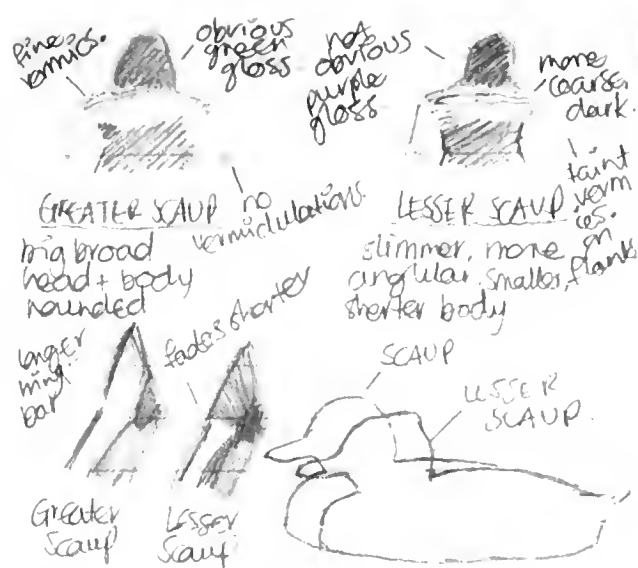 fine
vermics.
obvious
green
gloss
not
obvious
purple
gloss
more
coarse,
dark.
faint
verm
ics.
on
flanks
GREATER SCAUP
no
vermiculations.
LESSER SCAUP
big broad
head + body
rounded
slimmer, more
anglular, smaller,
shorter body
longer
wing
bar
fades shorter
SCAUP
LESSER
SCAUP.
Greater
Scaup
LESSER
Scaup